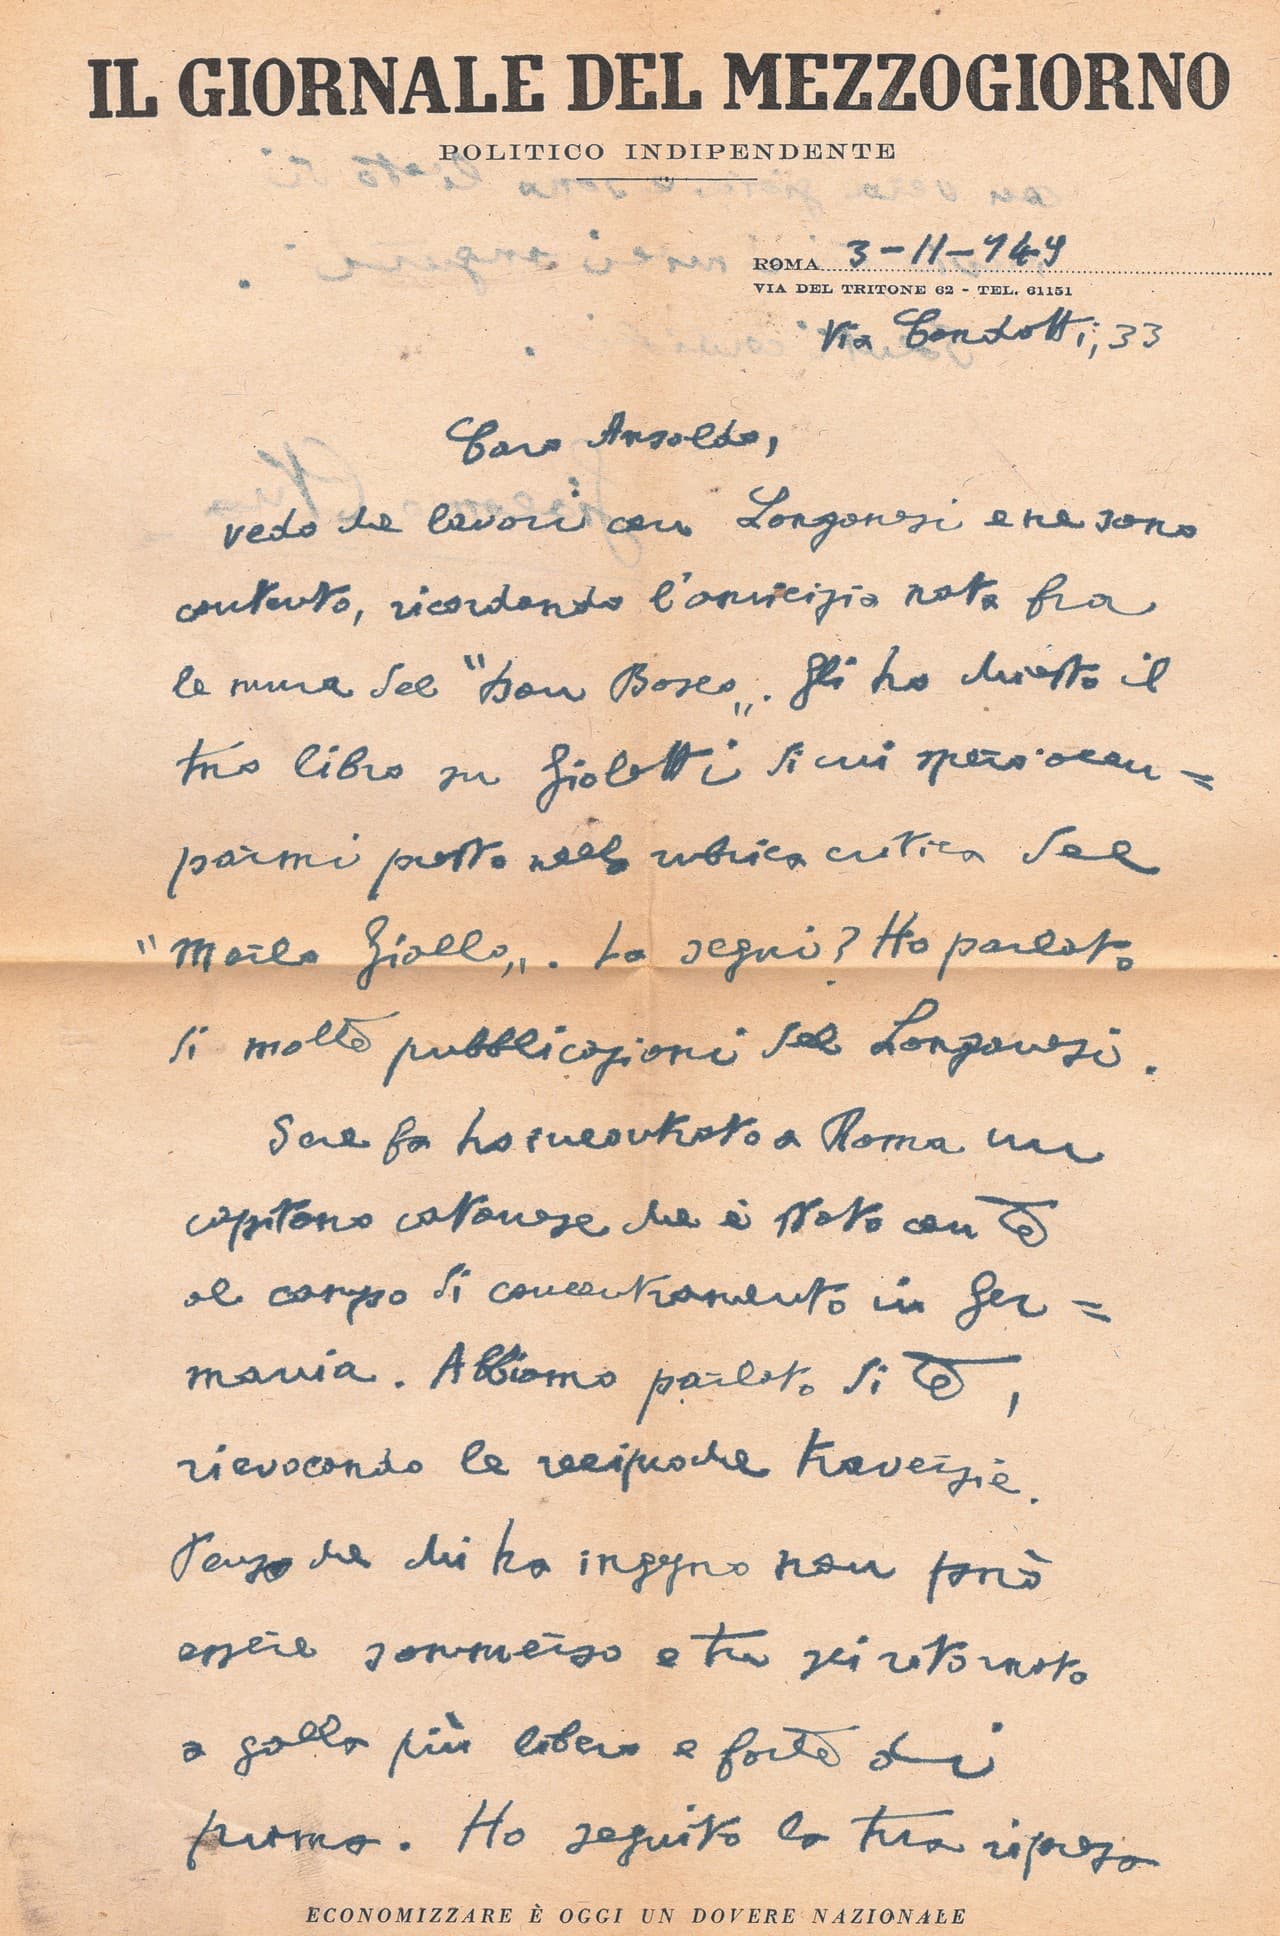 IL GIORNALE DEL MEZZOGIORNO
POLITICO INDIPENDENTE
ROMA 3-11-949
VIA DEL TRITONE 62 - TEL. 61151
Via Condotti, 33
Caro Ansaldo,
vedo che lavori con Longanesi e ne sono
contento, ricordando l'amicizia nata fra
le mura del "Don Bosco„. Gli ho chiesto il
tuo libro su Giolitti di cui spero occu=
parmi presto nella rubrica critica del
"Merlo Giallo„. La segui? Ho parlato
di molte pubblicazioni del Longanesi.
Sere fa ho incontrato a Roma un
capitano catanese che è stato con te
al campo di concentramento in Ger=
mania. Abbiamo parlato di te,
rievocando le reciproche traversie.
Penso che chi ha ingegno non può
essere sommerso e tu sei ritornato
a galla più libero e forte di
prima. Ho seguito la tua ripresa
ECONOMIZZARE È OGGI UN DOVERE NAZIONALE